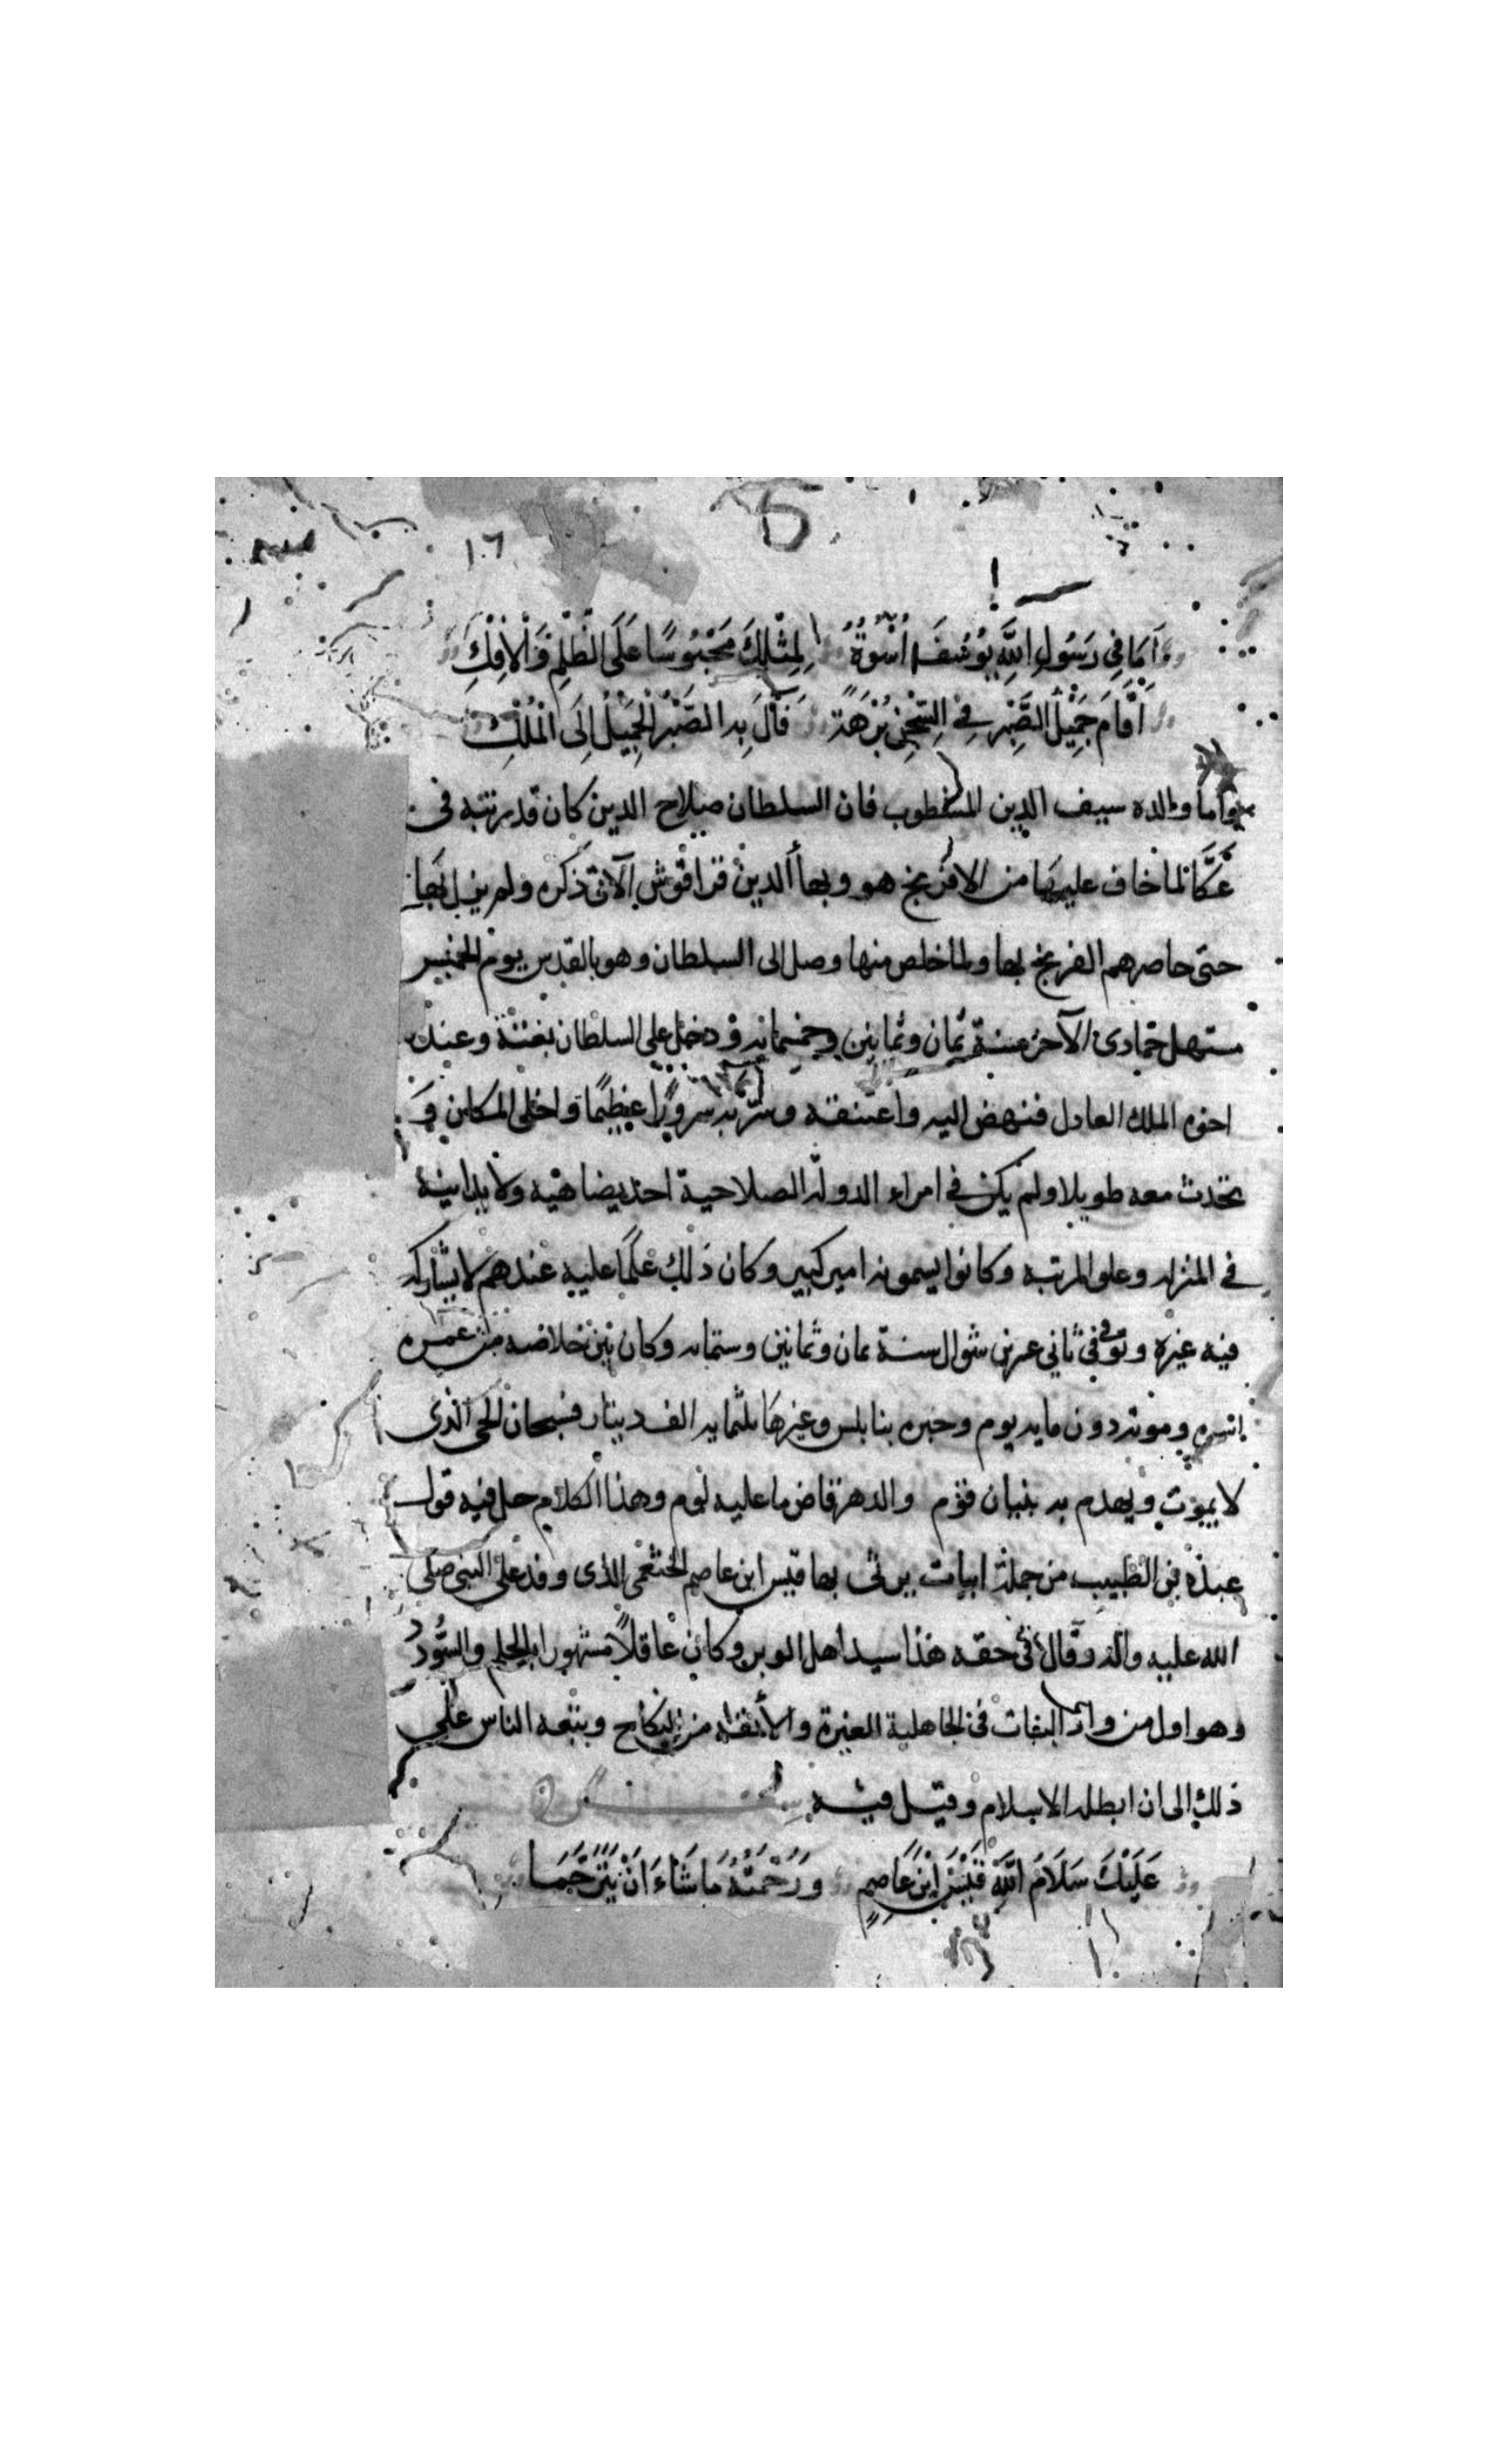 ١٠٦
أَمَا فِي رَسُولِ اللَّهِ يُوسُفَ أُسْوَةٌ لِمِثْلِكَ مَحْبُوسًا عَلَى الظُّلْمِ وَالْإِفْكِ
أَقَامَ جَمِيْلَ الصَّبْرِ فِي السِّجْنِ بُرْهَةً فَآلَ بِهِ الصَّبْرُ الْجَمِيْلُ إِلَى الْمُلْكِ
واما والده سيف الدين المشطوب فان السلطان صلاح الدين كان قد رتبه في
عَكَّا لما خاف عليها من الافرنج هو وبهأ الدين قراقوش الآتي ذكره ولم يزل بها
حتى حاصرهم الفرنج بها ولما خلص منها وصل الى السلطان وهو بالقدس يوم الخميس
مستهل جمادى الآخر سنة ثمان وثمانين وخمسمايه ودخل على السلطان بغتة وعنده
اخوه الملك العادل فنهض اليه واعتنقه وسر به سرورًا عظيمًا واخلى المكان و
تحدث معه طويلا ولم يكن في امراء الدوله الصلاحية احد يضاهيه ولا يدانيه
في المنزله وعلو المرتبه وكانوا يسمونه امير كبير وكان ذلك علمًا عليه عندهم لا يشاركه
فيه غيره وتوفي في ثاني عرين شوال سنة ثمان وثمانين وستمايه وكان بين خلاصه من
اسره وموته دون مايه يوم وخبره بنابلس وغيرها ثلثمايه الف دينار فسبحان الحي الذي
لا يموت ويهدم به بنيان قوم والدهر قاض ما عليه لوم وهذا الكلام حل فيه قول
عبدة بن الطبيب من جملة ابيات يرثى بها قيس ابن عاصم الذى وفد على النبي صلى
الله عليه واله وقال في حقه هذا سيد اهل الوبر وكان عاقلًا مشهورا بالحلم والسُّودد
وهو اول من واد البنات في الجاهلية الغيرة والأنفه من النكاح وتبعه الناس على
ذلك الى ان ابطله الاسلام وقيل فيه
عَلَيْكَ سَلَامُ اللَّهِ قَيْسَ ابْنَ عَاصِمٍ وَرَحْمَتُهُ مَا شَاءَ أَنْ يَتَرَحَّمَا